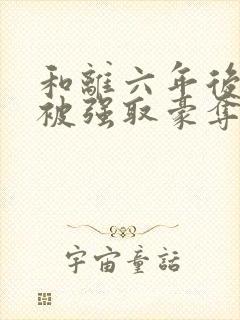 和離六年後
被强取豪奪
宇宙童話